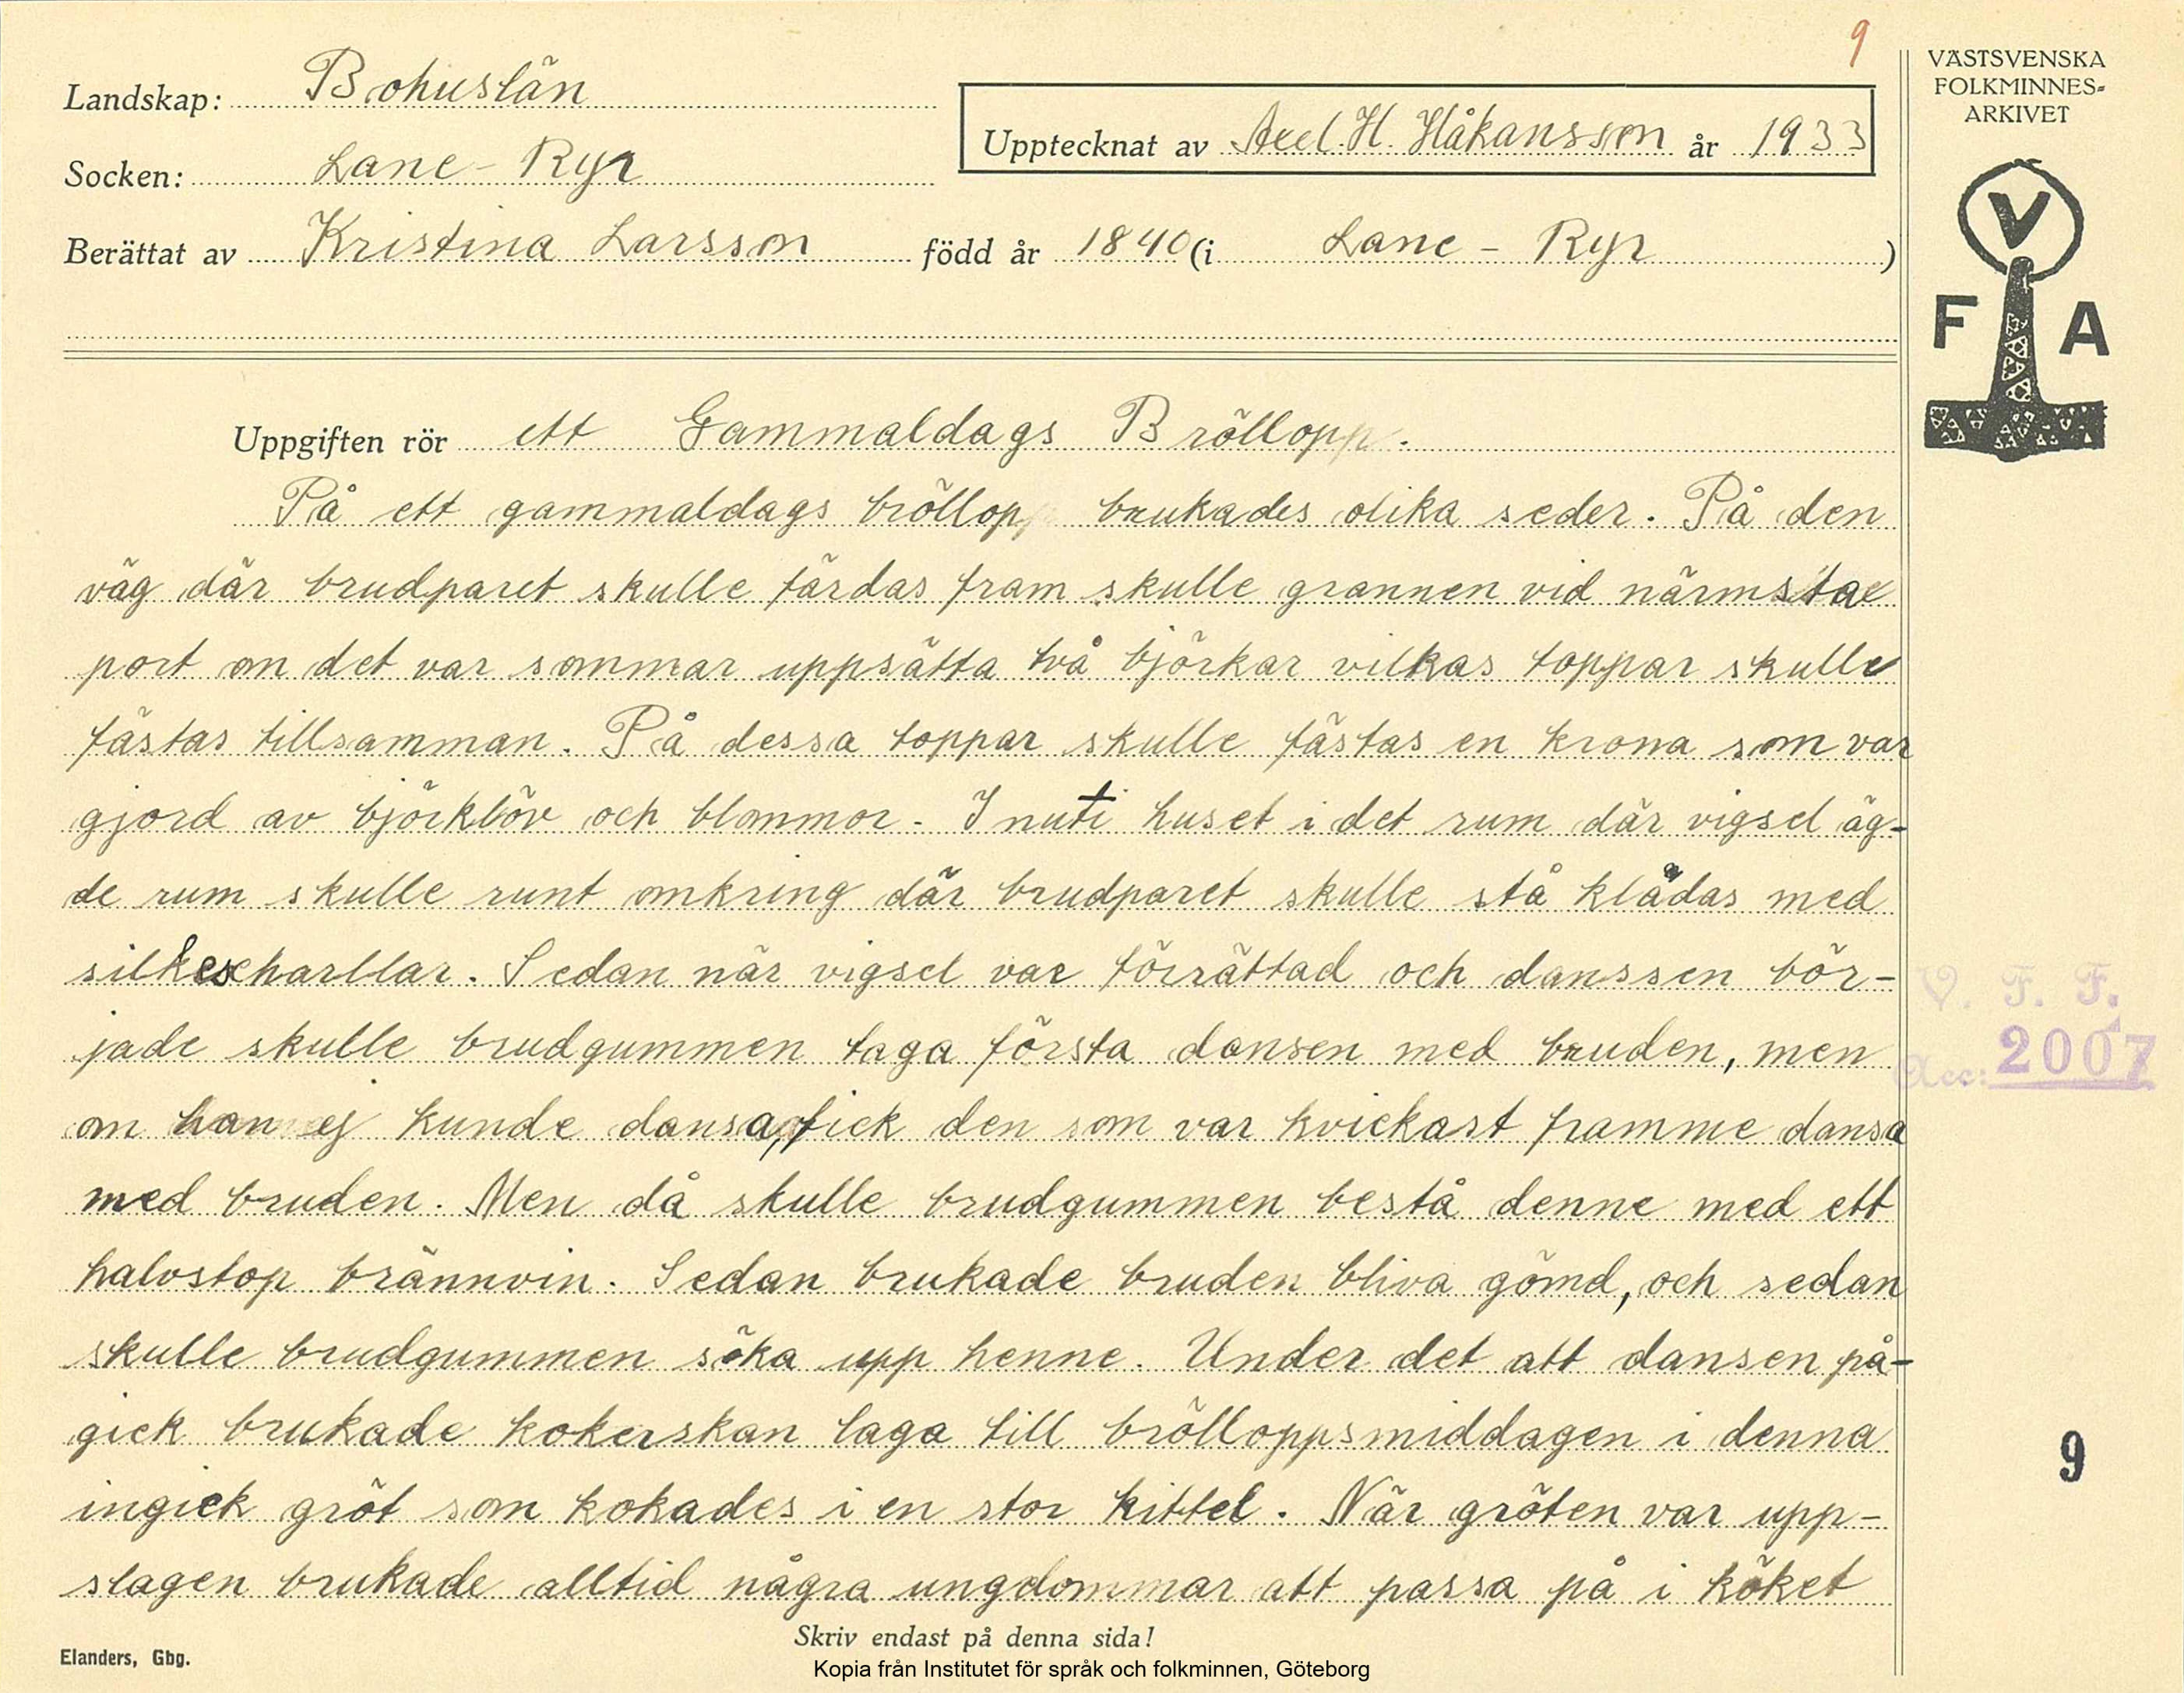 9
VÄSTSVENSKA
FOLKMINNES-
ARKIVET
Landskap: Bohuslän
Upptecknat av Axel. H. Håkansson år 1933
Socken: Lane-Ryr
Berättat av Kristina Larsson född år 1840 (i Lane-Ryr)
V
F A
Uppgiften rör ett Gammaldags Bröllopp.
På ett gammaldags bröllopp brukades olika seder. På den
väg där brudparet skulle färdas fram skulle grannen vid närmsta
port om det var sommar uppsätta två björkar vilkas toppar skulle
fästas tillsamman. På dessa toppar skulle fästas en krona som var
gjord av björklöv och blommor. Inuti huset i det rum där vigsel äg-
de rum skulle runt omkring där brudparet skulle stå klädas med
silkescharllar. Sedan när vigsel var förrättad och danssen bör-
jade skulle brudgummen taga första dansen med bruden, men
om han ej kunde dansa, fick den som var kvickast framme dansa
med bruden. Men då skulle brudgummen bestå denne med ett
halvstop brännvin. Sedan brukade bruden bliva gömd, och sedan
skulle brudgummen söka upp henne. Under det att dansen på-
gick brukade kokerskan laga till brölloppsmiddagen i denna
ingick gröt som kokades i en stor kittel. När gröten var upp-
slagen brukade alltid några ungdommar att passa på i köket
V. F. F.
Acc: 2007
9
Skriv endast på denna sida!
Elanders, Gbg.
Kopia från Institutet för språk och folkminnen, Göteborg